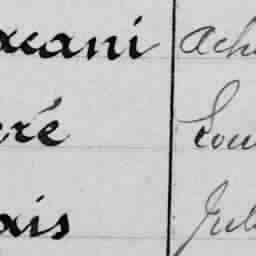 acani Ach
ré Lou
ais Jul